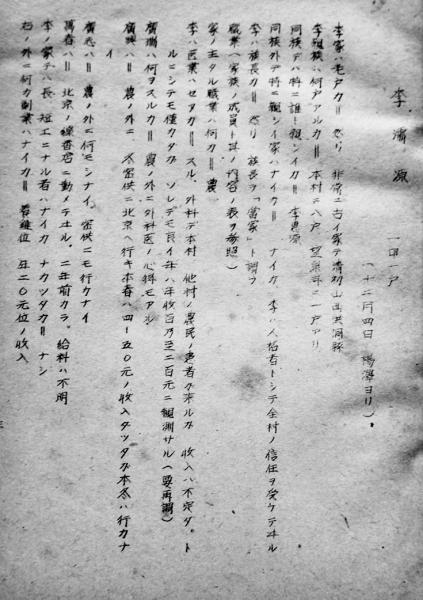 李濡源 一甲一戸
(十二月四日 楊澤ヨリ)。
李家ハ老戸カ‖ 然リ 非常ニ古イ家デ清初山西共洞縣
李姓族ハ何戸アルカ‖ 本村ニ八戸 望泉寺ニ一戸アリ
同族デハ特ニ誰ト親シイカ‖ 李惠源
同族外デ特ニ親シイ家ハナイカ‖ ナイガ、李ハ人格者トシテ全村ノ信任ヲ受ケテヰル
李ハ族長カ‖ 然リ 族長ヲ「當家」ト謂フ
職業(家族ノ成員ト其ノ内容ノ表ヲ参照)
家ノ主タル職業ハ何カ‖ 農
李ハ医業ハセヌカ‖ スル。外科デ本村 他村ノ農民ノ患者ガ来ルガ 收入ハ不定ダ。ト
ルニシテモ極ク少ダ ソレデモ良イ年ハ年收百乃至二百元ニ観測サル(要再調)
廣瑞ハ何ヲスルカ‖ 農ノ外ニ外科医ノ心得モアル
廣興ハ‖ 農ノ外ニ 冬密供ニ北京ヘ行キ本春ハ四─五〇元ノ收入ダツタガ本冬ハ行カナ
イ
廣志ハ‖ 農ノ外ニ何モシナイ、密供ニモ行カナイ
萬春ハ‖ 北京ノ線香店ニ勤メテヰル。二年前カラ。給料ハ不明
李ノ家デハ長、短工ニナル者ハナイカ ナカツタカ‖ ナシ
右ノ外ニ何カ副業ハナイカ‖ 養種位 年二〇元位ノ收入